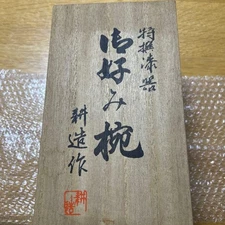 特撰漆器
御好み椀
耕造作